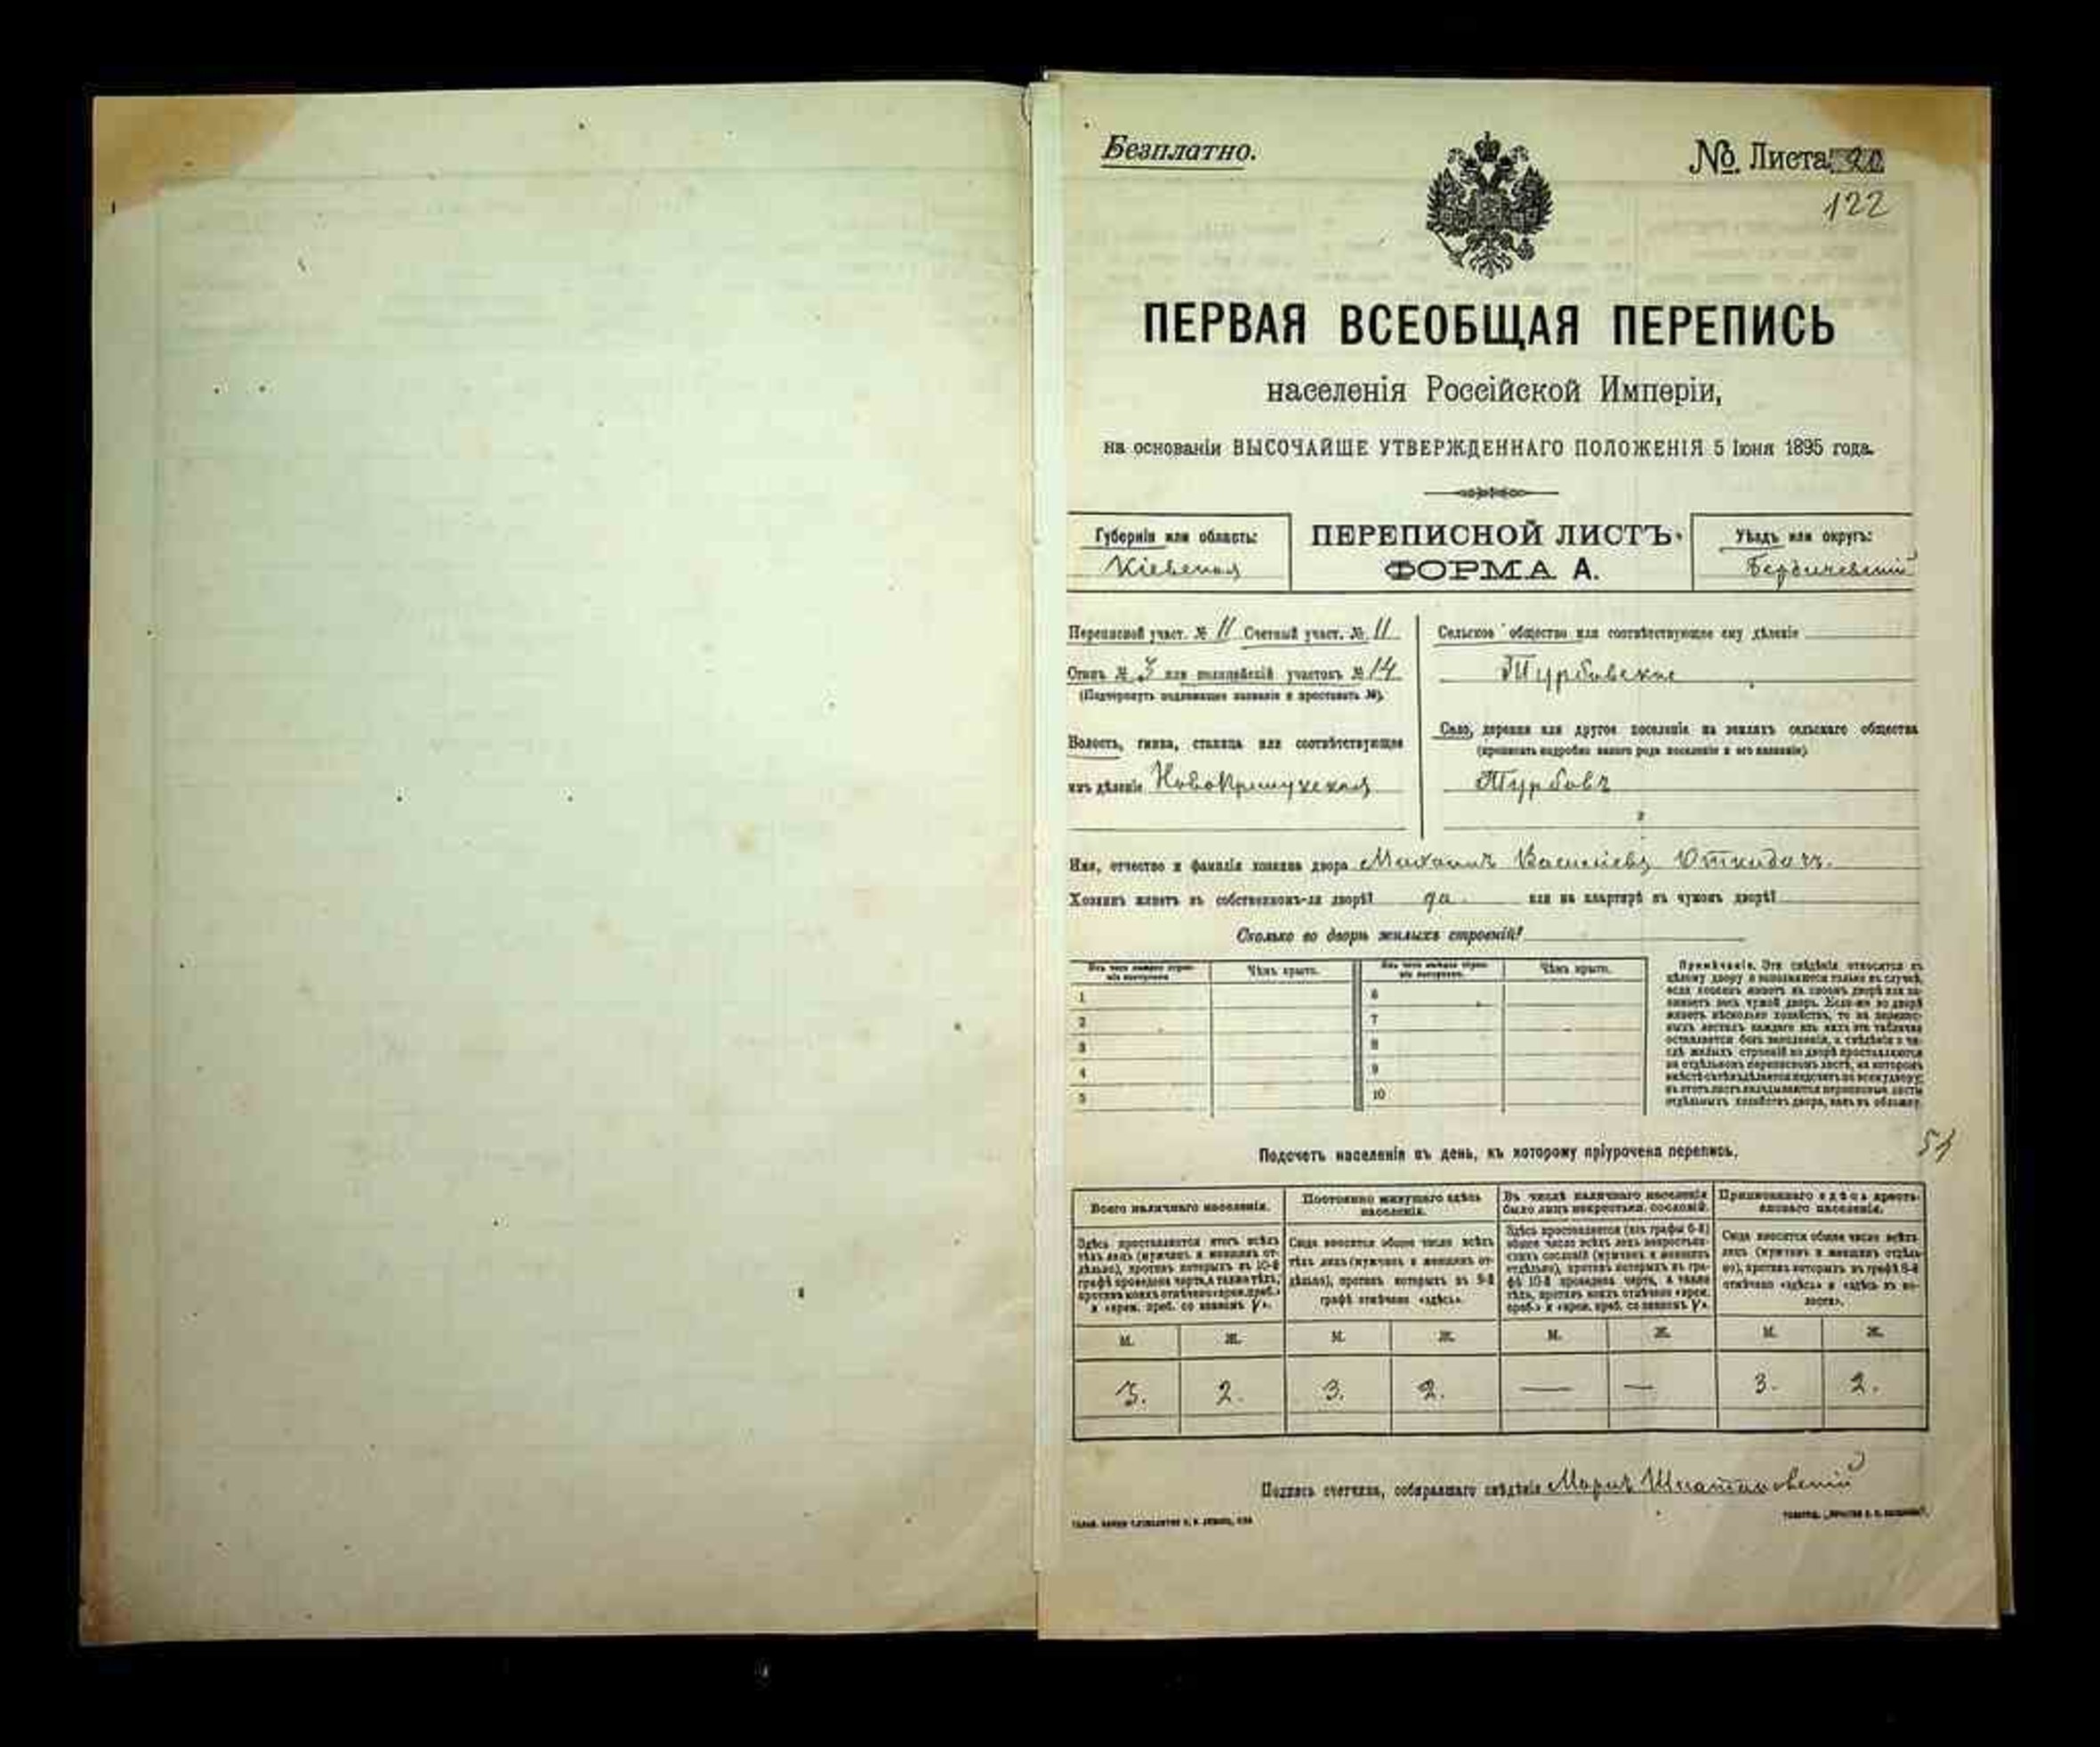 Безплатно.
№ Листа 20
122
ПЕРВАЯ ВСЕОБЩАЯ ПЕРЕПИСЬ
населенія Россійской Имперіи,
на основаніи ВЫСОЧАЙШЕ УТВЕРЖДЕННАГО ПОЛОЖЕНІЯ 5 Іюня 1895 года.
Губернія или область:
Кіевская
ПЕРЕПИСНОЙ ЛИСТЪ
ФОРМА А.
Уѣздъ или округъ:
Бердичевскій
Переписной участ. № 11 Счетный участ. № 11
Станъ № 3 или полицейскій участокъ № 14
(Подчеркнуть подлежащее названіе и проставить №).
Волость, гмина, станица или соотвѣтствующее
имъ дѣленіе НовоПрилукская
Сельское общество или соотвѣтствующее ему дѣленіе
Турбовское
Село, деревня или другое поселеніе на земляхъ сельскаго общества
(прописать подробно какого рода поселеніе и его названіе)
Турбовъ
Имя, отчество и фамилія хозяина двора Васильевъ
Хозяинъ живетъ въ собственномъ-ли дворѣ? да. или на квартирѣ въ чужомъ дворѣ?
Сколько во дворѣ жилыхъ строеній?
Изъ чего каждое строеніе построено Чѣмъ крыто. Изъ чего каждое строеніе построено. Чѣмъ крыто.
1 6
2 7
3 8
4 9
5 10
Примѣчаніе. Эти свѣдѣнія относятся къ
цѣлому двору и заполняются только въ случаѣ,
если хозяинъ живетъ въ своемъ дворѣ или за-
нимаетъ весь чужой дворъ. Если-же во дворѣ
живетъ нѣсколько хозяйствъ, то на перепис-
ныхъ листахъ каждаго изъ нихъ эта табличка
оставляется безъ заполненія, а свѣдѣнія о чи-
слѣ жилыхъ строеній во дворѣ проставляются
на отдѣльномъ переписномъ листѣ, на которомъ
вмѣстѣ съ тѣмъ дѣлается подсчетъ по всему двору;
въ этотъ листъ вкладываются переписные листы
отдѣльныхъ хозяйствъ двора, какъ въ обложку.
Подсчетъ населенія въ день, къ которому пріурочена перепись.
51
Всего наличнаго населенія.
Здѣсь проставляются итогъ всѣхъ
тѣхъ лицъ (мужчинъ и женщинъ от-
дѣльно), противъ которыхъ въ 10-й
графѣ проведена черта, а также тѣхъ,
противъ коихъ отмѣчено «врем. преб.»
и «врем. преб. со знакомъ V».
Постоянно живущаго здѣсь
населенія.
Сюда вносится общее число всѣхъ
тѣхъ лицъ (мужчинъ и женщинъ от-
дѣльно), противъ которыхъ въ 9-й
графѣ отмѣчено «здѣсь».
Въ числѣ наличнаго населенія
было лицъ некрестьян. сословій.
Здѣсь проставляется (изъ графы 6-й)
общее число всѣхъ лицъ некрестьян-
скихъ сословій (мужчинъ и женщинъ
отдѣльно), противъ которыхъ въ гра-
фѣ 10-й проведена черта, а также
тѣхъ, противъ коихъ отмѣчено «врем.
преб.» и «врем. преб. со знакомъ V».
Приписаннаго здѣсь кресть-
янскаго населенія.
Сюда вносится общее число всѣхъ
лицъ (мужчинъ и женщинъ отдѣль-
но), противъ которыхъ въ графѣ 8-й
отмѣчено «здѣсь» и «здѣсь въ во-
лости».
М. Ж. М. Ж. М. Ж. М. Ж.
3. 2. 3. 2. — — 3. 2.
Подпись счетчика, собиравшаго свѣдѣнія